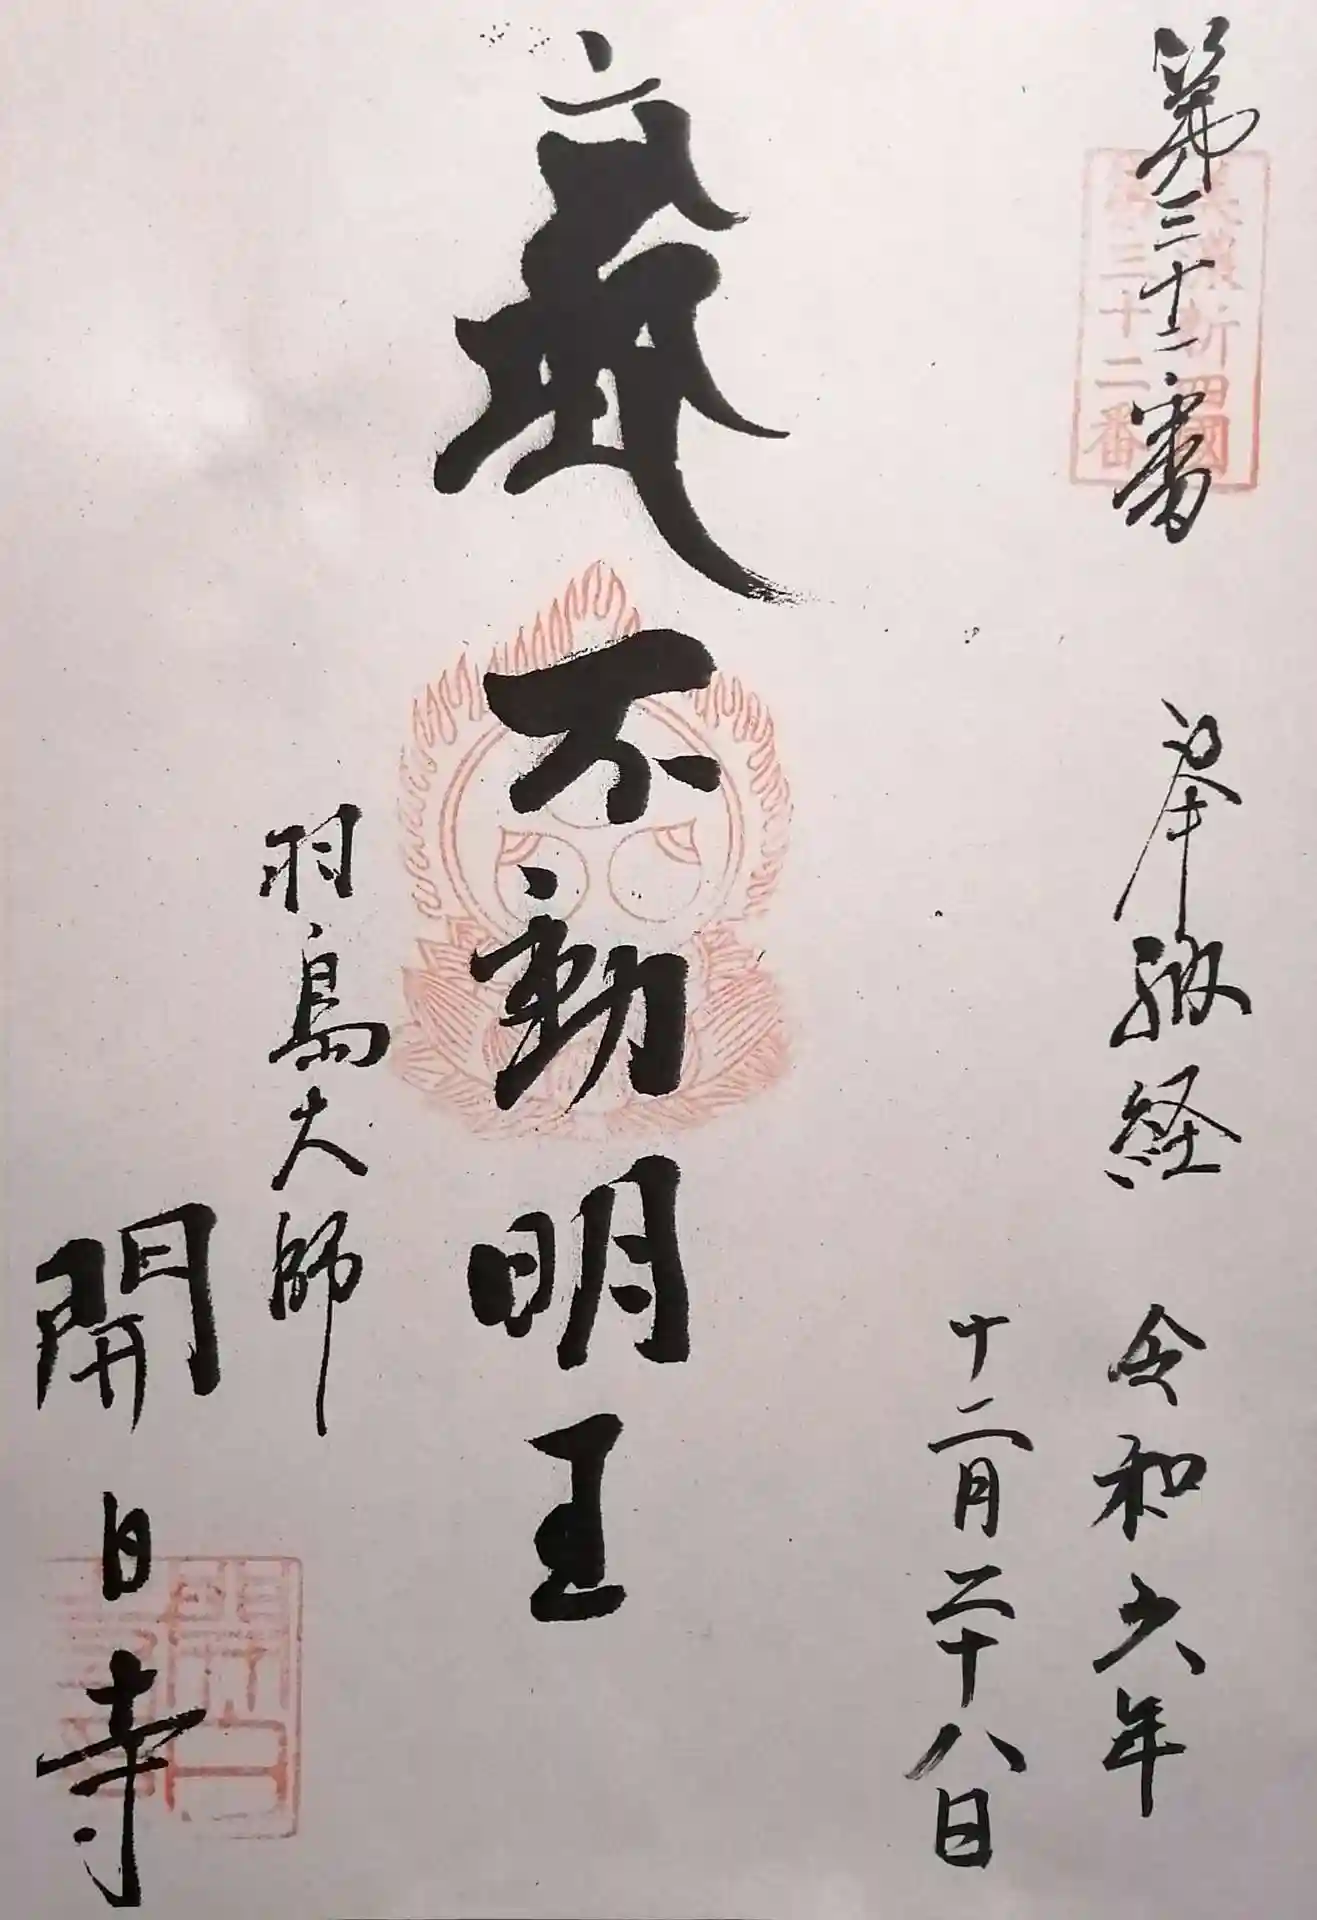 第三十二番 奉納経 令和六年
美濃新四國
第三十二番
十二月二十八日
不動明王
羽島大師
開日寺